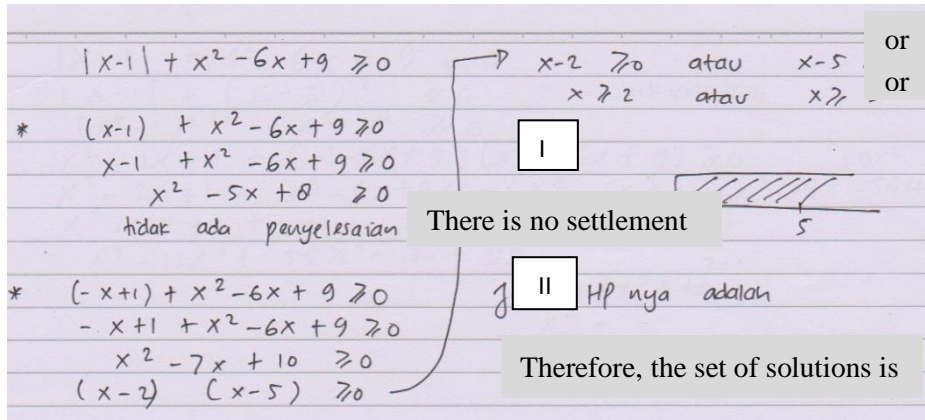 |x-1| + x² - 6x + 9 ⩾ 0
* (x-1) + x² - 6x + 9 ⩾ 0
x-1 + x² - 6x + 9 ⩾ 0
x² - 5x + 8 ⩾ 0
tidak ada penyelesaian
There is no settlement
* (-x+1) + x² - 6x + 9 ⩾ 0
- x+1 + x² - 6x + 9 ⩾ 0
x² - 7x + 10 ⩾ 0
(x-2) (x-5) ⩾ 0
x-2 ⩾ 0 atau x-5
or
x ⩾ 2 atau x ⩾
or
I
5
II HP nya adalah
Therefore, the set of solutions is